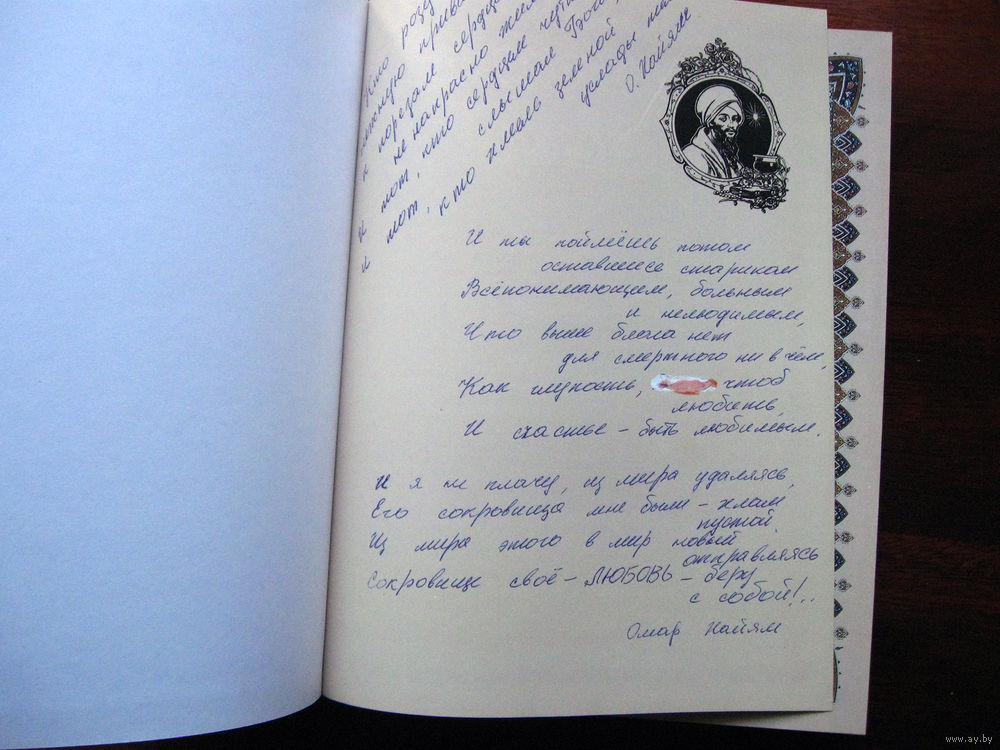 Кто розу
нежную приви
к порезам сердца
не напрасно жил
И тот, кто сердцем чутк
слышал Бога,
И тот, кто хмель земной
услады
О. Хайям
И ты поймёшь потом
оставшись стариком
Всёпонимающим, больным
и нелюдимым,
Что выше блага нет
для смертного ни в чём,
Как глупость, чтоб
любить,
И счастье – быть любимым.
И я не плачу, из мира удаляясь,
Его сокровища мне были – хлам
пустой.
Из мира этого в мир новый
отправляясь
Сокровище своё – ЛЮБОВЬ – беру
с собой!..
Омар Хайям
www.ay.by